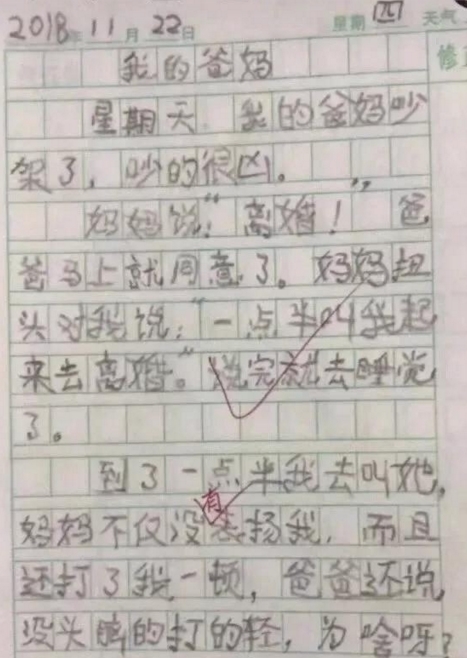 2018年11月22日 星期四 天气
修
我的爸妈
星期天,我的爸妈吵
架了,吵的很凶。
妈妈说:“离婚!”爸
爸马上就同意了。妈妈扭
头对我说:“一点半叫我起
来去离婚。”说完就去睡觉
了。
到了一点半我去叫她,
妈妈不仅没有表扬我,而且
还打了我一顿,爸爸还说
没头脑的打的轻,为啥呀?